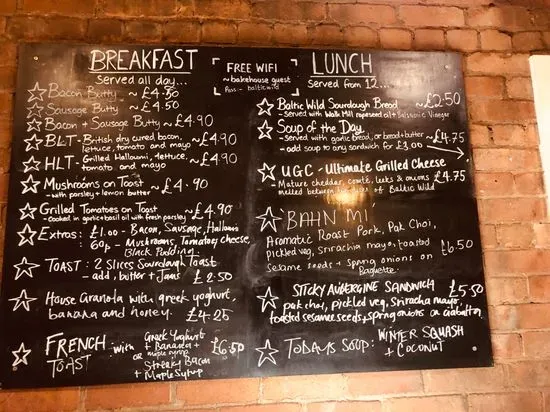 BREAKFAST
Served all day...
☆ Bacon Butty ~ £4.50
☆ Sausage Butty ~ £4.50
☆ Bacon + Sausage Butty ~ £4.90
☆ BLT - British dry cured bacon, lettuce, tomato and mayo ~ £4.90
☆ HLT - Grilled Halloumi, lettuce, tomato and mayo ~ £4.90
☆ Mushrooms on Toast ~ £4.90
- with parsley + lemon butter
☆ Grilled Tomatoes on Toast ~ £4.90
- Cooked in garlic + basil oil with fresh parsley
☆ Extras: £1.00 - Bacon, Sausage, Halloumi
60p - Mushrooms, Tomatoes, Cheese,
Black Pudding
☆ TOAST: 2 SLICES Sourdough Toast
- add, butter + Jams £2.50
☆ House Granola with greek yoghurt,
banana and honey. £4.25
☆ FRENCH TOAST with Greek Yoghurt
Banana +
or maple syrup
Streaky Bacon
+ Maple Syrup £6.50
FREE WIFI
~ bakehouse guest
Pass: - balticwild
LUNCH
Served from 12...
☆ Baltic Wild Sourdough Bread ~ £2.50
- Served with Walk Mill rapeseed oil + Balsamic Vinegar
☆ Soup of the Day ~ £4.75
- Served with garlic bread, or bread + butter
- add soup to any sandwich for £3.00
☆ UGC - Ultimate Grilled Cheese
- Mature cheddar, comté, leeks & onions £4.75
melted between slices of Baltic Wild
☆ BAHN MI
Aromatic Roast Pork, Pak Choi,
pickled veg, srirachia mayo, toasted £6.50
Sesame seeds + spring onions on
Baguette
☆ STICKY AUBERGINE SANDWICH £5.50
pak choi, pickled veg, Sriracha mayo,
toasted sesame seeds + spring onions on ciabatta.
☆ TODAYS SOUP: WINTER SQUASH
+ COCONUT